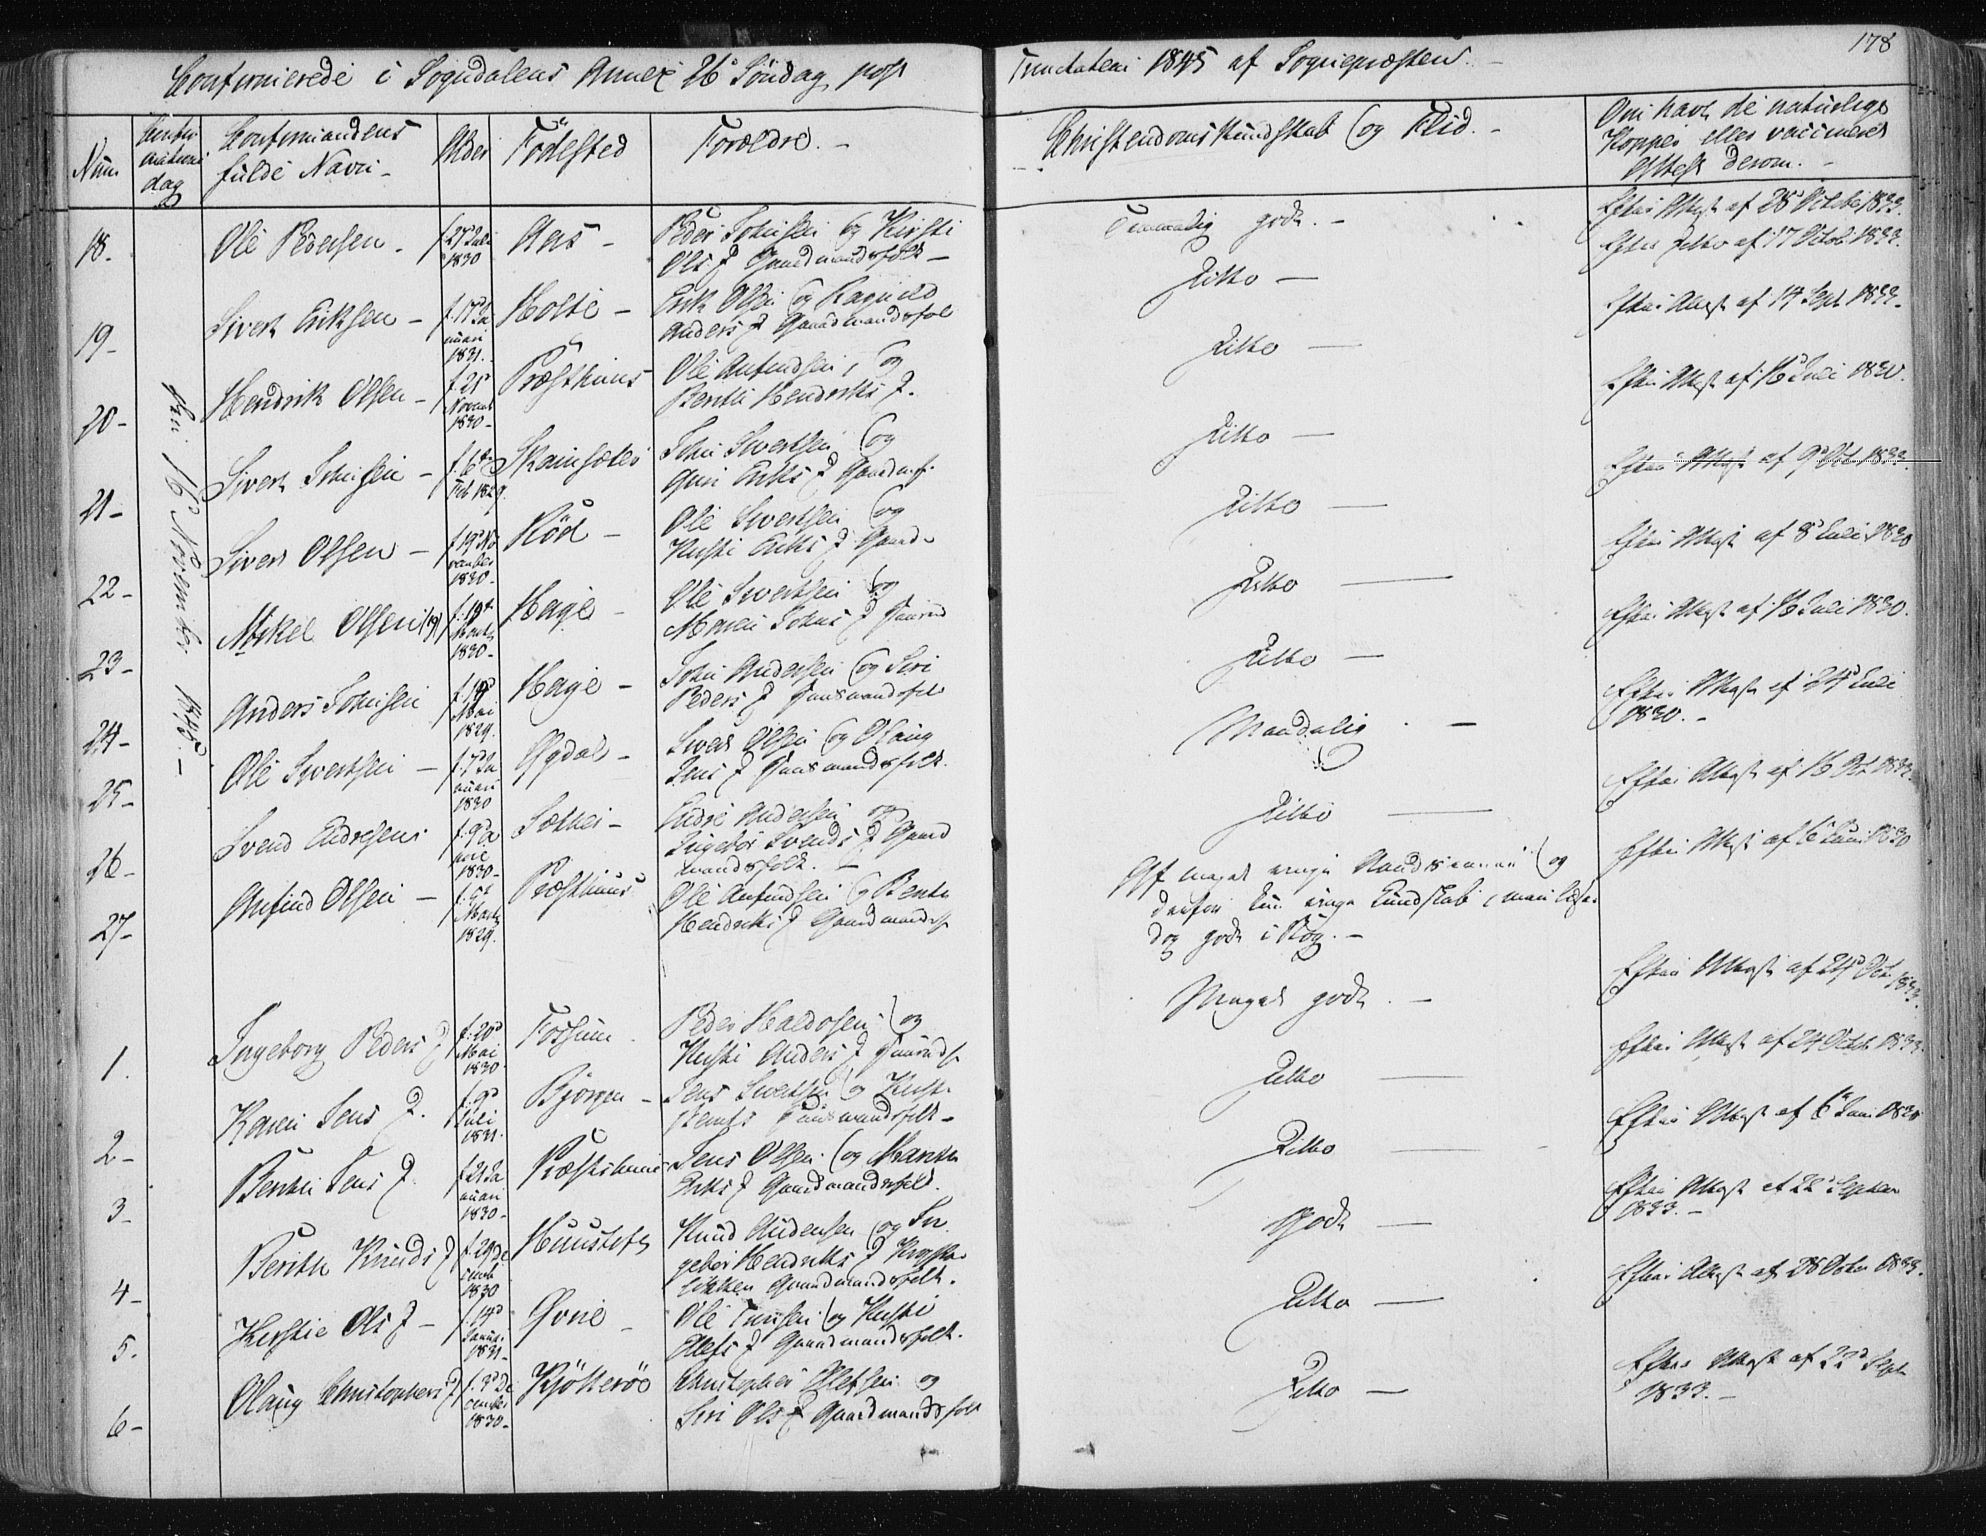 178
Confirmerede i Sogndalens Annex 26 Söndag post Trinitatem 1845 af Sognepræsten.
Num
Confirmations dag
Confirmandens fulde Navn
Alder
Födested
Forældre.
Christendoms Kundskab og Flid.
Om havt de naturlige Kopper eller vaccineret Attest derom.
den 16 November 1845.
18.
Ole Pedersen
f 25 Juli 1830
Aas
Peder Johnsen og Kirsti
Ols D Gaardmandsfolk
Temmelig godt.
Efter Attest af 28 October 1833.
19
Sivert Eriksen
f. 17 Januari 1831.
Holte
Erik Olsen og Ragnild
Anders D Gaardmandsfol
Ditto
Efter Ditto af 17 Octob 1833.
20
Hendrik Olsen
f. 25 Novemb 1830
Præsthuus
Ole Anfindsen og
Berith Hendriks D.
Ditto
Efter Attest af 14 Sept 1833
21
Sivert Johnsen
Feb 1829.
John Sivertsen og
Guri Eriks D Gaardmf.
Ditto
Efter Attest af 16 Juli 1830.
22
Sivert Olsen
f 19 November 1830
Röd
Ole Sivertsen og
Kirsti Eriks D Gaard
Ditto
Efter Attest af 9 Oct 1833.
23
Mikel Olsen
f. 19 Marts 1830
Hage
Ole Sivertsen og
Maren Johns D Gaard
Ditto
Efter Attest af 8 Juli 1830
24
Anders Johnsen
Mai 1829.
Hage
John Andersen og Siri
Peders D Huusmandsfolk
Ditto
Efter Attest af 16 Juli 1830.
25
Ole Sivertsen
f. 7 Januari 1830
Ugdal
Sivert Olsen og Olaug
Jens D Huusmandsfolk.
Maadelig
Efter Attest af 24 Juli 1830.
26
Svend Endresen
f. 9 1830
Sæther
Endre Andersen og
Ingebor Svends D Gaard
mandsfolk.
Ditto
Efter Attest af 16 Oct 1833.
27
Anfind Olsen
f. 5 Marts 1829.
Præsthuus
Ole Anfindsen og Berith
Hendriks D Gaardmandsf
Af meget ringe Aandsevne og
derfor kun ringe Kundskab, men læser
dog godt i Bog.
Efter Attest af 6 Juni 1830
1.
Ingeborg Peders D
f. 20 Mai 1830
Fossum
Peder Haldosen og
Kirsti Anders D Gaardsf
Meget godt.
Efter Attest af 24 Oct 1833.
2
Karen Jens D.
f. 9 Juli 1831.
Björgen
Jens Sivertsen og Kirsti
Bernts Huusmandsfolk
Ditto
Efter Attest af 24 Octob 1833.
3
Berith Jens D.
f. 21 Januari 1830
Præsthuus
Jens Olsen og Marith
Eriks D Gaardmandsfolk.
Ditto
Efter Attest af 6 Juni 1830
4
Berith Knuds D
1830
Huustoft
Knud Audensen og In
gebor Hendriks D
Gaardmandsfolk.
Godt
Efter Attest af 22 September 1833.
5.
Kirstie Ols D
f 14 Januari 1831
Gvne
Ole og Kirsti
Olefs D Gaardmandsfolk.
Ditto
Efter Attest af 28 October 1833.
6
Olaug Christophers D
f. 3 December 1830
Kjötteröe
Christopher Olefsen og
Siri Ols D Gaardmandsfolk
Ditto
Efter Attest af 22 Sept 1833.